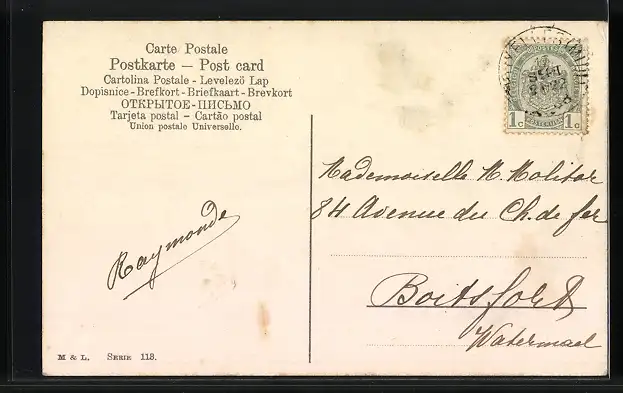 Carte Postale
Postkarte — Post card
Cartolina Postale - Levelező Lap
Dopisnice - Brefkort - Briefkaart - Brevkort
ОТКРЫТОЕ-ПИСЬМО
Tarjeta postal — Cartão postal
Union postale Universelle.
1c 1c
Mademoiselle M. Molitor
84 Avenue du Ch. de fer
Raymonde
Boitsfort
Watermael
M & L. Serie 113.